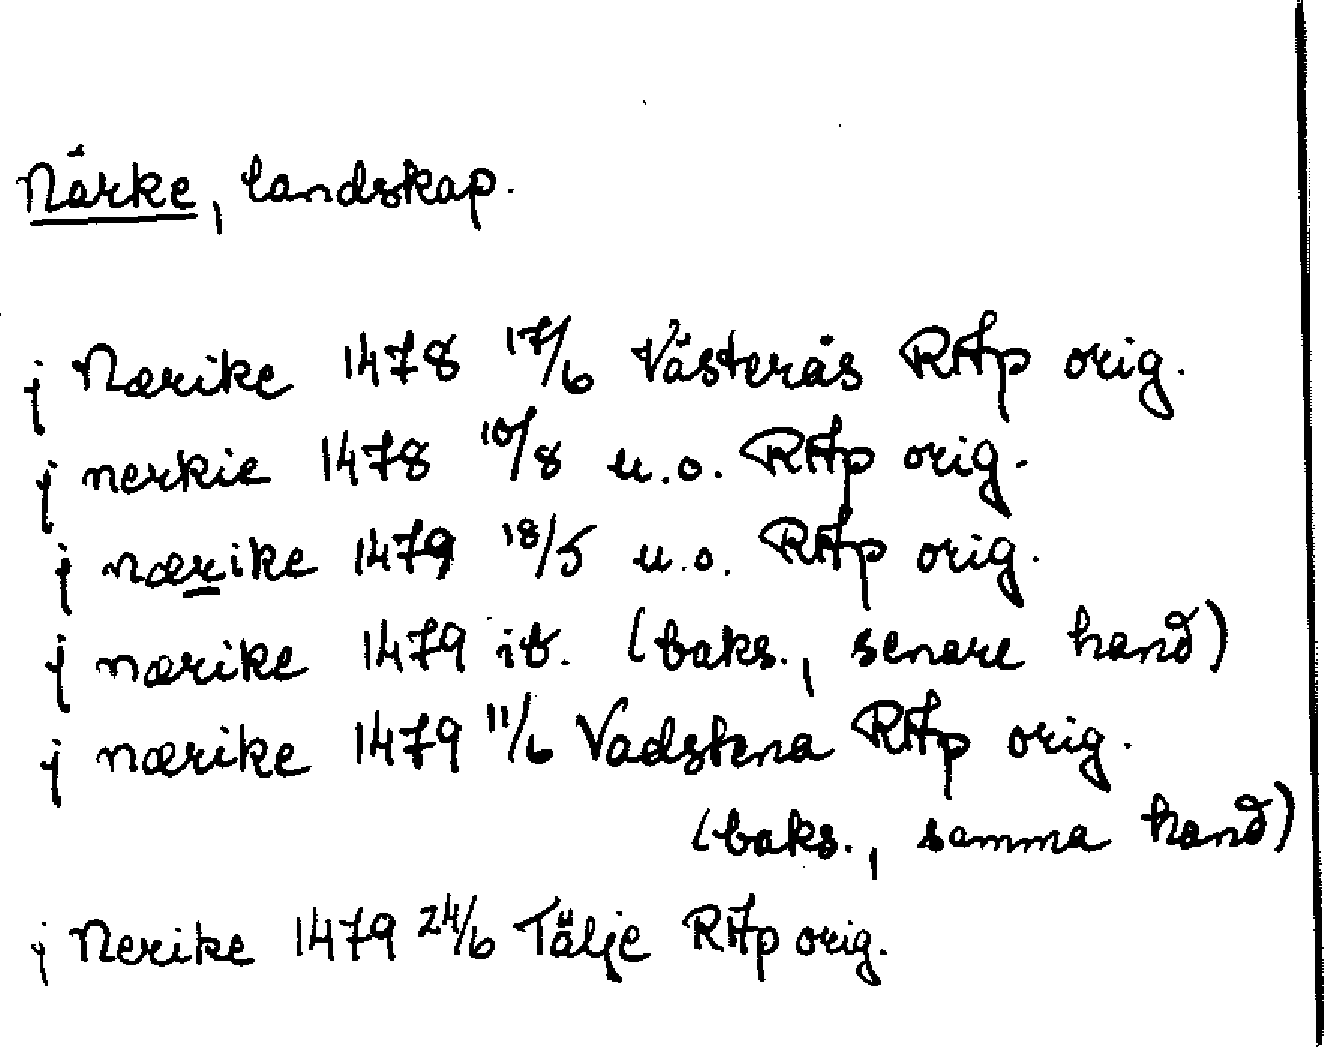 Närke, landskap.
j Nærike 1478 17/6 Västerås RAp orig.
j nerkie 1478 10/8 u.o. RAp orig.
j nærike 1479 18/5 u.o. RAp orig.
j nærike 1479 ib. (baks., senare hand)
j nærike 1479 11/6 Vadstena RAp orig.
(baks., samma hand)
j Nerike 1479 24/6 Tälje RAp orig.